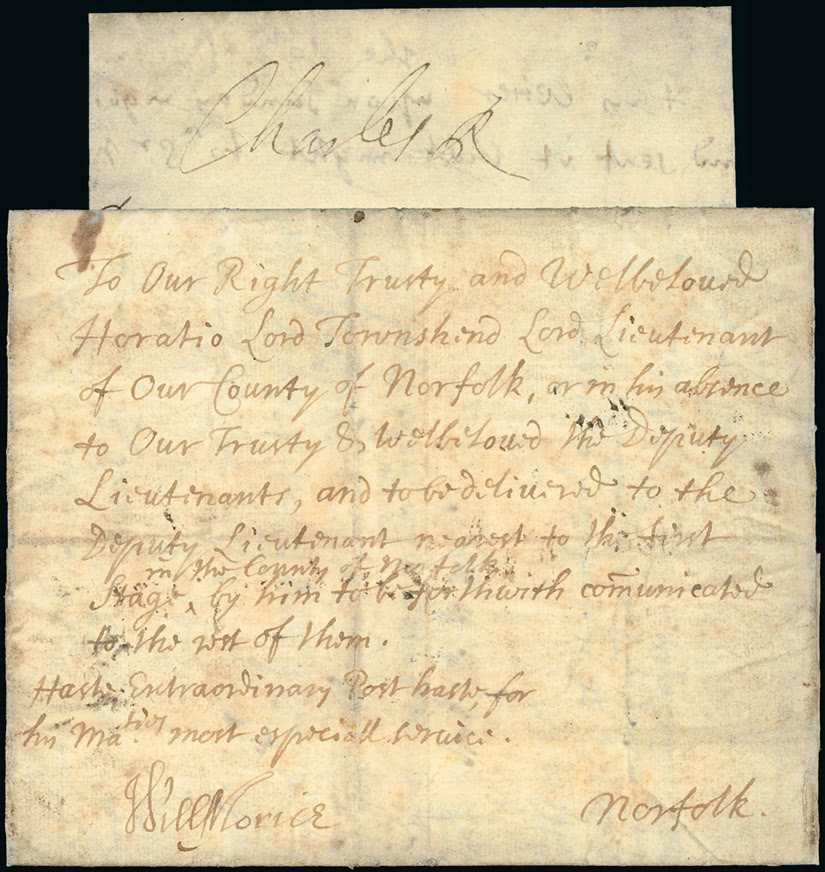 Charles R
To Our Right Trusty and Welbeloved
Horatio Lord Townshend Lord Lieutenant
of Our County of Norfolk, or in his absence
to Our Trusty & Welbeloved the Deputy
Lieutenants, and to be delivered to the
Deputy Lieutenant nearest to the first
in the County of Norfolk
Stage, ‸ by him to be forthwith com̄unicated
to the rest of them.
Haste Extraordinary Post haste, for
his Ma:ties most especiall service.
Will Morice
Norfolk.